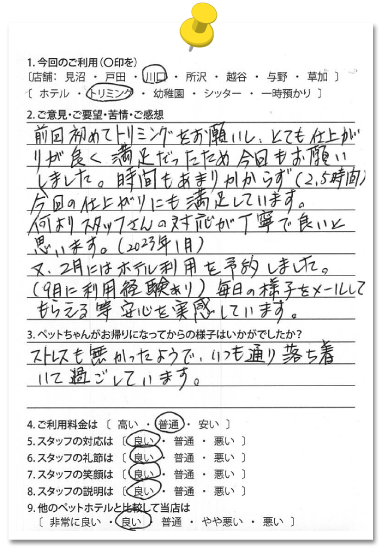 1. 今回のご利用(〇印を)
〔店舗： 見沼 ・ 戸田 ・ 川口 ・ 所沢 ・ 越谷 ・ 与野 ・ 草加 〕
〔 ホテル ・ トリミング ・ 幼稚園 ・ シッター ・ 一時預かり 〕
2. ご意見・ご要望・苦情・ご感想
前回初めてトリミングをお願いし、とても仕上が
りが良く満足だったため今回もお願い
しました。時間もあまりかからず(2,5時間)
今回の仕上がりにも満足しています。
何よりスタッフさんの対応が丁寧で良いと
思います。(2023年1月)
又、2月にはホテル利用を予約しました。
(9月に利用経験あり)毎日の様子をメールして
もらえる等安心を実感しています。
3. ペットちゃんがお帰りになってからの様子はいかがでしたか?
ストレスも無かったようで、いつも通り落ち着
いて過ごしています。
4. ご利用料金は 〔 高い ・ 普通 ・ 安い 〕
5. スタッフの対応は 〔 良い ・ 普通 ・ 悪い 〕
6. スタッフの礼節は 〔 良い ・ 普通 ・ 悪い 〕
7. スタッフの笑顔は 〔 良い ・ 普通 ・ 悪い 〕
8. スタッフの説明は 〔 良い ・ 普通 ・ 悪い 〕
9. 他のペットホテルと比較して当店は
〔 非常に良い ・ 良い ・ 普通 ・ やや悪い ・ 悪い 〕